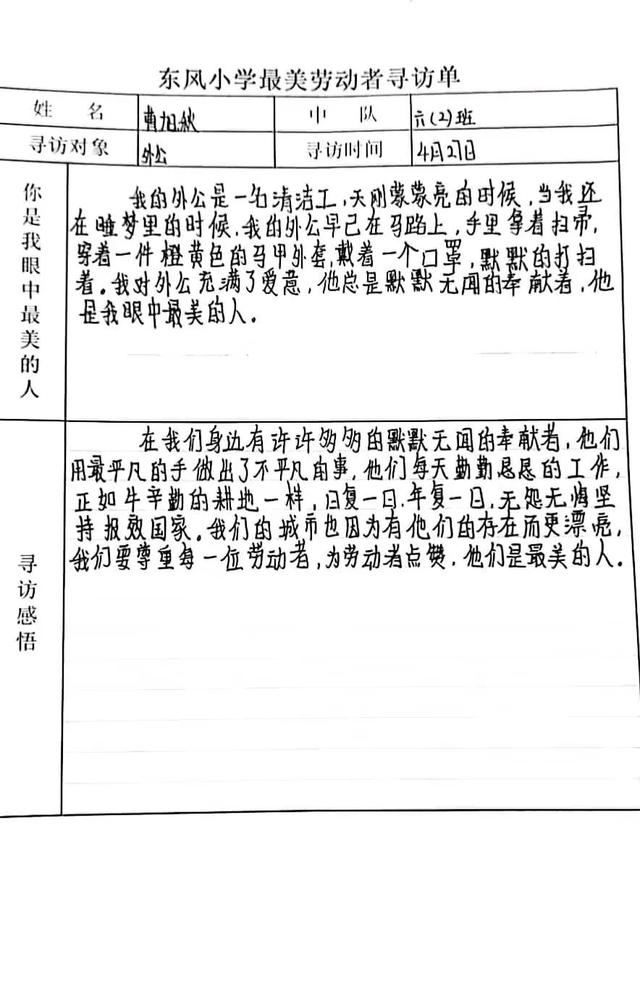 东风小学最美劳动者寻访单
姓 名 曹旭秋 中 队 六(2)班
寻访对象 外公 寻访时间 4月27日
你是我眼中最美的人
我的外公是一名清洁工,天刚蒙蒙亮的时候,当我还
在睡梦里的时候,我的外公早已在马路上,手里拿着扫帚,
穿着一件橙黄色的马甲外套,戴着一个口罩,默默的打扫
着。我对外公充满了爱意,他总是默默无闻的奉献着,他
是我眼中最美的人。
寻访感悟
在我们身边有许许多多的默默无闻的奉献者,他们
用最平凡的手做出了不平凡的事,他们每天勤勤恳恳的工作,
正如牛辛勤的耕地一样,日复一日,年复一日,无怨无悔坚
持报效国家。我们的城市也因为有他们的存在而更漂亮,
我们要尊重每一位劳动者,为劳动者点赞,他们是最美的人。